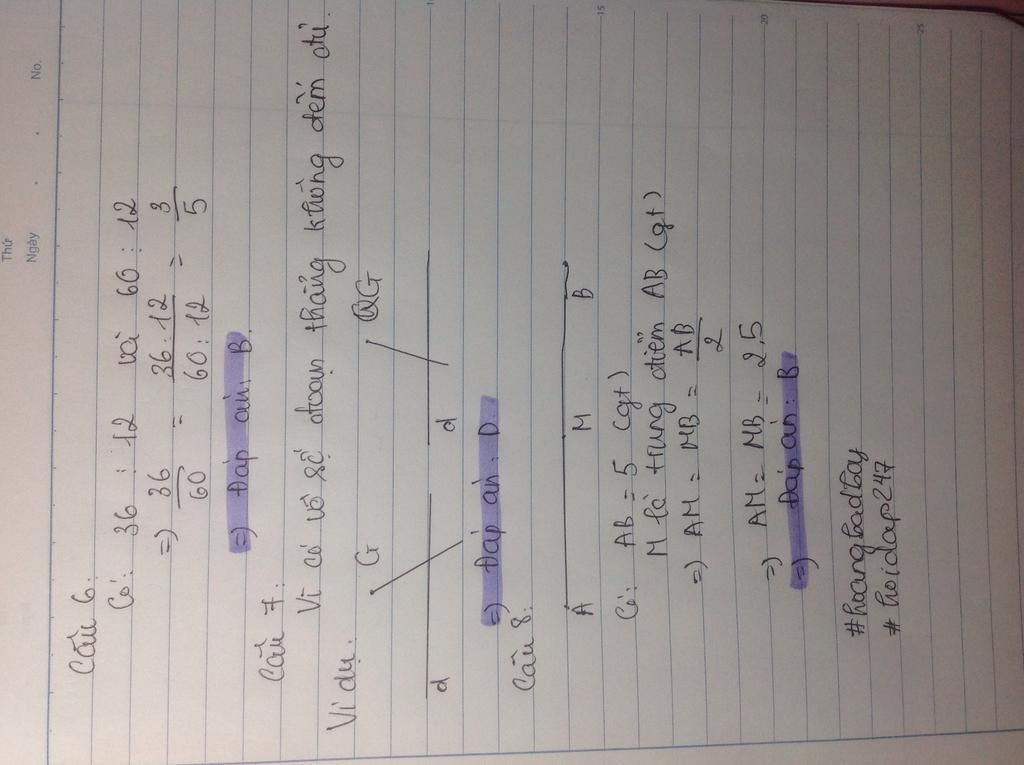 Thứ
Ngày
No.
Câu 6:
Có: 36 : 12 và 60 : 12
=) 36/60 = 36:12/60:12 = 3/5
=) Đáp án: B.
Câu 7:
Vì có vô số đoạn thẳng không đếm đủ.
Ví dụ: G G
d d
=) Đáp án: D.
Câu 8:
A M B
Có: AB = 5 (gt)
M là trung điểm AB (gt)
=) AM = MB = AB/2
=) AM = MB = 2,5
=) Đáp án: B.
#hoangbadbay
#hoidap247
10
15
20
25